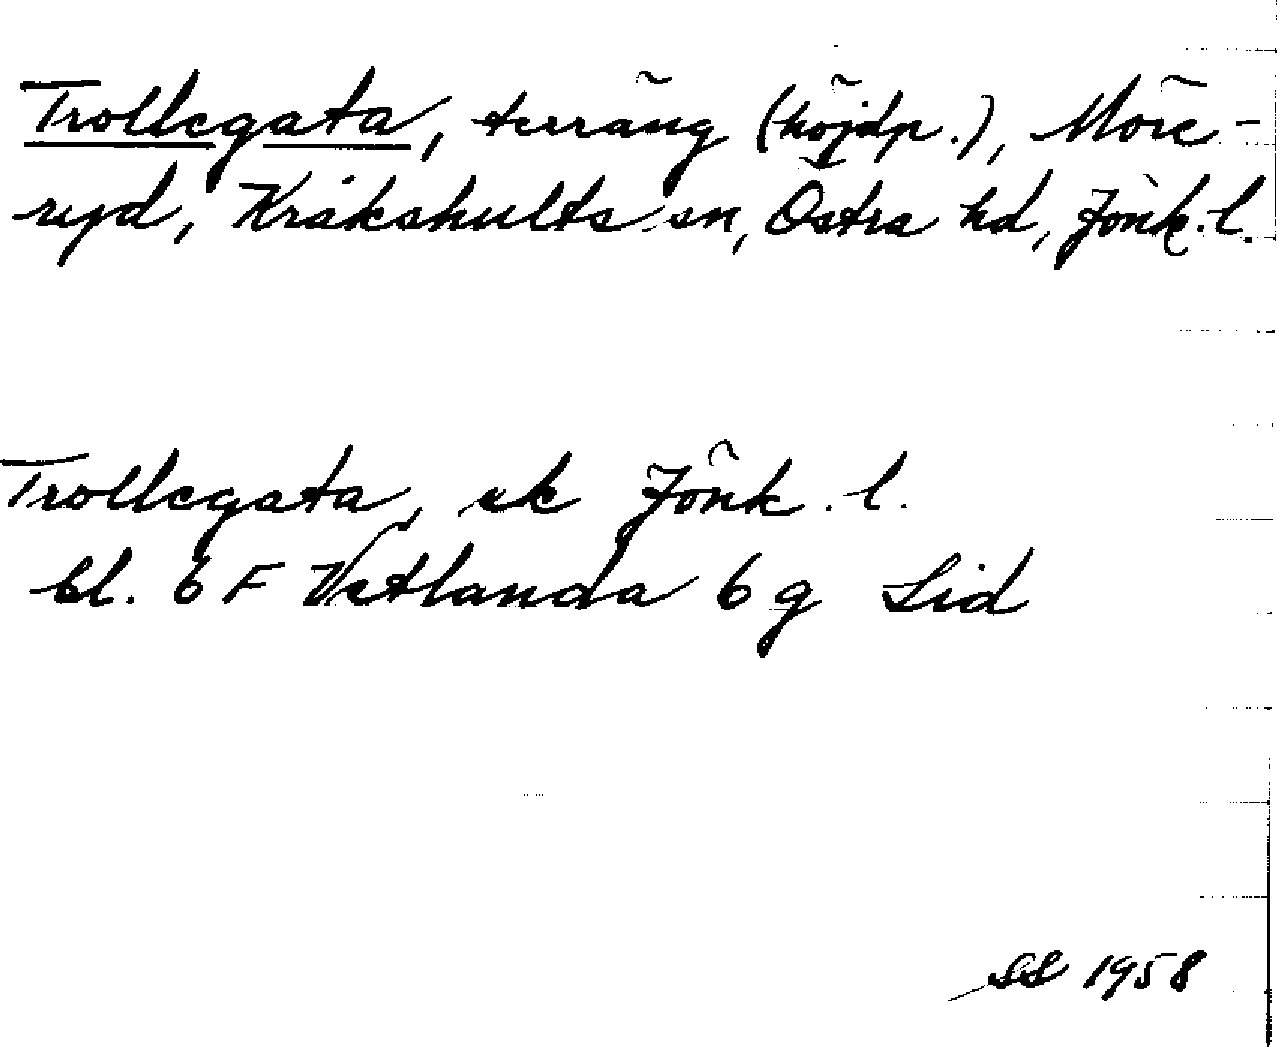 Trollegata, terräng (höjdp.), Möre-
ryd, Kråkshults sn, Östra hd, Jönk. l.
Trollegata, ek Jönk. l.
bl. 6 F Vetlanda 6 g Lid
SS 1958